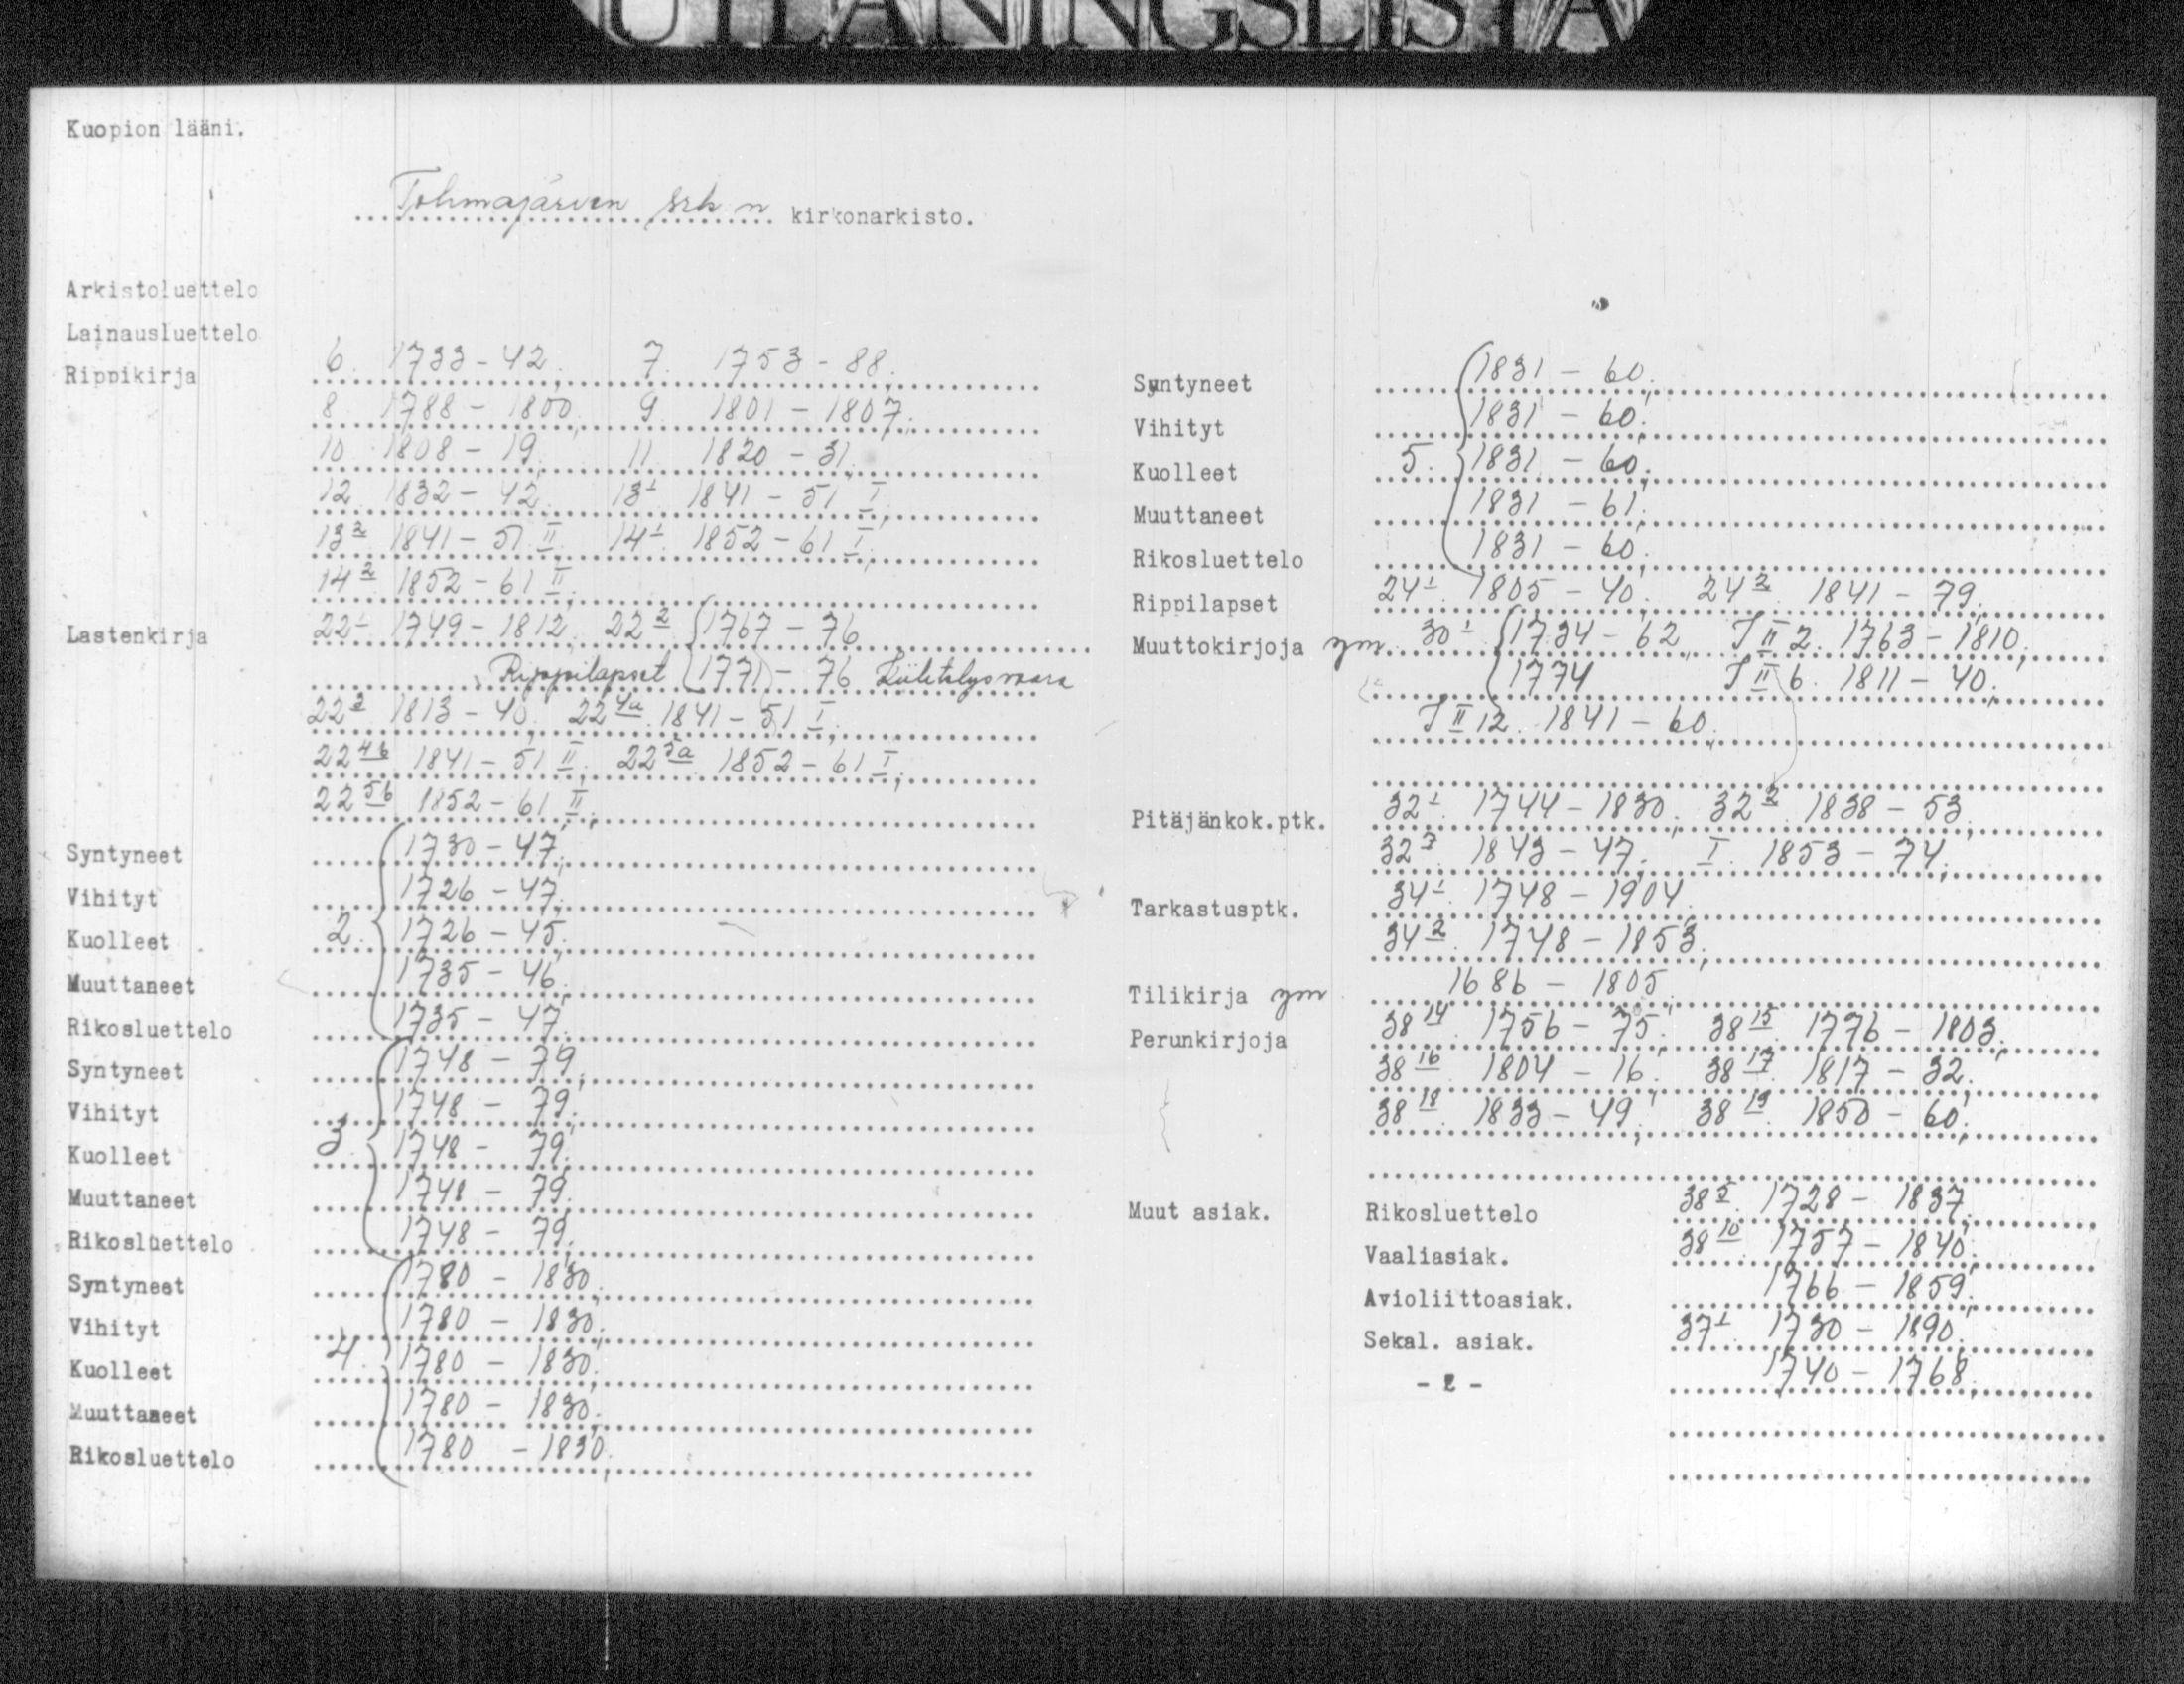 UTLÅNINGSLISTA
Kuopion lääni.
Tohmajärven srk n kirkonarkisto.
Arkistoluettelo
Lainausluettelo
Rippikirja 6. 1733-42. 7. 1753-88.
8 1788-1800, 9. 1801-1807.
10 1808-19. 11. 1820-31.
12 1832-42. 13¹ 1841-51 I,
13² 1841-51 II. 14¹ 1852-61 I.
14² 1852-61 II,
Lastenkirja 22¹ 1749-1812. 22² 1767-76
Rippilapset 1771-76 Kiihtelysvaara
22³ 1813-40. 22⁴ᵃ 1841-51 I.
22⁴ᵇ 1841-51 II, 22⁵ᵃ 1852-61 I,
22⁵ᵇ 1852-61 II,
Syntyneet 1730-47,
Vihityt 1726-47.
Kuolleet 2. 1726-45.
Muuttaneet 1735-46.
Rikosluettelo 1735-47.
Syntyneet 1748-79,
Vihityt 1748-79.
Kuolleet 3. 1748-79.
Muuttaneet 1748-79.
Rikosluettelo 1748-79.
Syntyneet 1780-1830.
Vihityt 1780-1830.
Kuolleet 4. 1780-1830.
Muuttaneet 1780-1830.
Rikosluettelo 1780-1830.
Syntyneet 1831-60.
Vihityt 1831-60.
Kuolleet 5. 1831-60.
Muuttaneet 1831-61.
Rikosluettelo 1831-60.
Rippilapset 24¹. 1805-40. 24². 1841-79.
Muuttokirjoja ym. 30¹ 1734-62, I II 2. 1763-1810.
1774 I II 6. 1811-40.
I II 12. 1841-60.
Pitäjänkok.ptk. 32¹. 1744-1830. 32². 1838-53,
32³. 1843-47. I. 1853-74.
Tarkastusptk. 34¹. 1748-1904.
34². 1748-1853.
Tilikirja ym 1686-1805.
Perunkirjoja 38¹⁴. 1756-75. 38¹⁵. 1776-1803.
38¹⁶. 1804-16. 38¹⁷. 1817-32.
38¹⁸. 1833-49. 38¹⁹. 1850-60.
Muut asiak. Rikosluettelo 38⁵. 1728-1837.
Vaaliasiak. 38¹⁰. 1757-1840.
Avioliittoasiak. 1766-1859.
Sekal. asiak. 37¹. 1730-1890.
- 2 - 1740-1768.